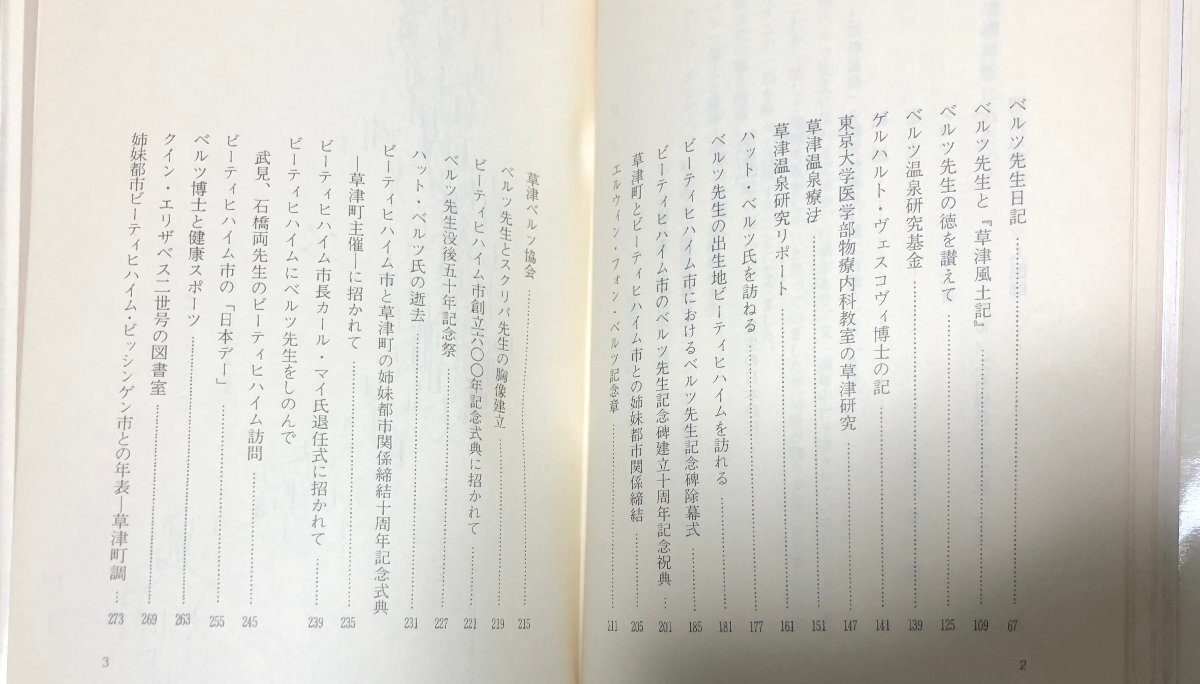 ベルツ先生日記……67
ベルツ先生と『草津風土記』……109
ベルツ先生の徳を讃えて……125
ベルツ温泉研究基金……139
ゲルハルト・ヴェスコヴィ博士の記……141
東京大学医学部物療内科教室の草津研究……147
草津温泉療法……151
草津温泉研究リポート……161
ハット・ベルツ氏を訪ねる……177
ベルツ先生の出生地ビーティヒハイムを訪れる……181
ビーティヒハイム市におけるベルツ先生記念碑除幕式……185
ビーティヒハイム市のベルツ先生記念碑建立十周年記念祝典……201
草津町とビーティヒハイム市との姉妹都市関係締結……205
エルウィン・フォン・ベルツ記念章……211
2
草津ベルツ協会……215
ベルツ先生とスクリバ先生の胸像建立……219
ビーティヒハイム市創立六〇〇年記念式典に招かれて……221
ベルツ先生没後五十年記念祭……227
ハット・ベルツ氏の逝去……231
ビーティヒハイム市と草津町の姉妹都市関係締結十周年記念式典
―草津町主催―に招かれて……235
ビーティヒハイム市長カール・マイ氏退任式に招かれて……239
ビーティヒハイムにベルツ先生をしのんで
武見、石橋両先生のビーティヒハイム訪問……245
ビーティヒハイム市の「日本デー」……255
ベルツ博士と健康スポーツ……263
クイン・エリザベス二世号の図書室……269
姉妹都市ビーティヒハイム・ビッシンゲン市との年表―草津町調……273
3